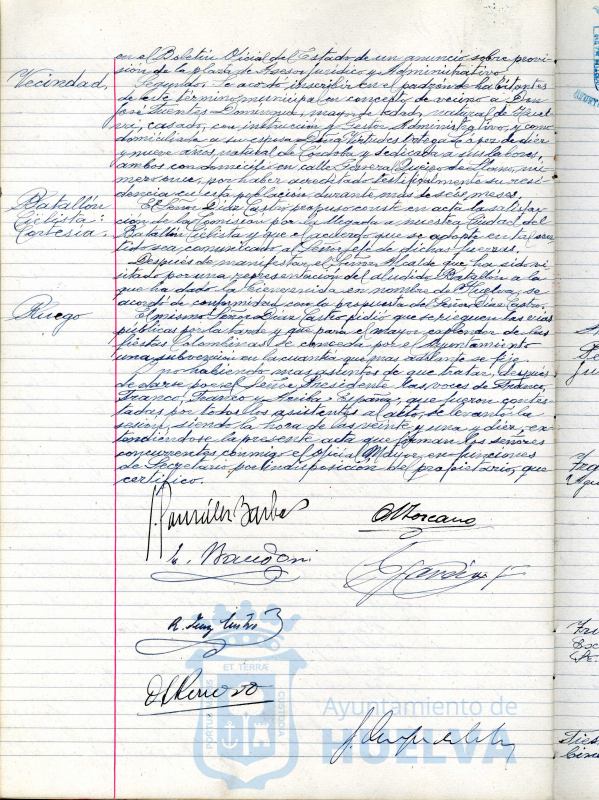 en el Boletín Oficial del Estado de un anuncio sobre provi-
sión de la plaza de Asesor Jurídico y Administrativo.
Vecindad.
Segundo. Se acordó inscribir en el padrón de habitantes
de este término municipal en concepto de vecino a Don
José Fuentes Domínguez, mayor de edad, natural de
casado, con instrucción y Gestor Administrativo, y como
domiciliada a su esposa Doña Virtudes Ortega de diez
y nueve años, natural de Córdoba y dedicada a sus labores,
ambos con domicilio en calle General Queipo de Llano, nú-
mero once, por haber acreditado testificalmente su resi-
dencia en esta población durante más de seis meses.
Batallón
Ciclista:
Cortesía.
El Señor Díaz Castro propuso conste en acta la satisfac-
ción de la Comisión por la llegada a nuestra Ciudad del
Batallón Ciclista y que el acuerdo que se adopte en tal sen-
tido sea comunicado al Señor Jefe de dichas fuerzas.
Después de manifestar el Señor Alcalde que ha sido vi-
sitado por una representación del aludido Batallón a la
que ha dado la bienvenida en nombre de Huelva, se
acordó de conformidad con la propuesta del Señor Díaz Castro.
Ruego
El mismo Señor Díaz Castro pidió que se rieguen las vías
públicas por la tarde y que para el mayor esplendor de las
fiestas Colombinas se conceda por el Ayuntamiento
una subvención en la cuantía que mas adelante se fije.
No habiendo mas asuntos de que tratar, después
de darse por el Señor Presidente las voces de Franco,
Franco, Franco y Arriba España, que fueron contes-
tadas por todos los asistentes al acto, se levantó la
sesión, siendo la hora de las veinte y una y diez, ex-
tendiéndose la presente acta que firman los señores
concurrentes conmigo el Oficial Mayor, en funciones
de Secretario por indisposición del propietario, que
certifico.
ET TERRÆ
PORTUS MARIS
CUSTODIA
Ayuntamiento de
HUELVA